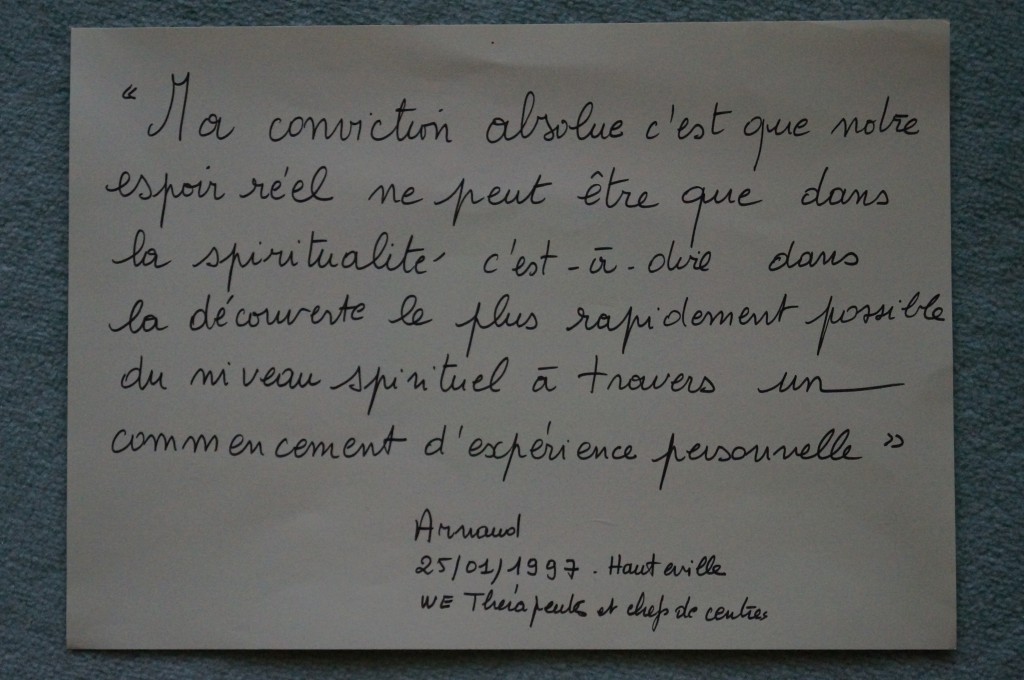 “ Ma conviction absolue c'est que notre
espoir réel ne peut être que dans
la spiritualité c'est-à-dire dans
la découverte le plus rapidement possible
du niveau spirituel à travers un
commencement d'expérience personnelle ”
Arnaud
25/01/1997 . Hauteville
WE Thérapeutes et chefs de centres